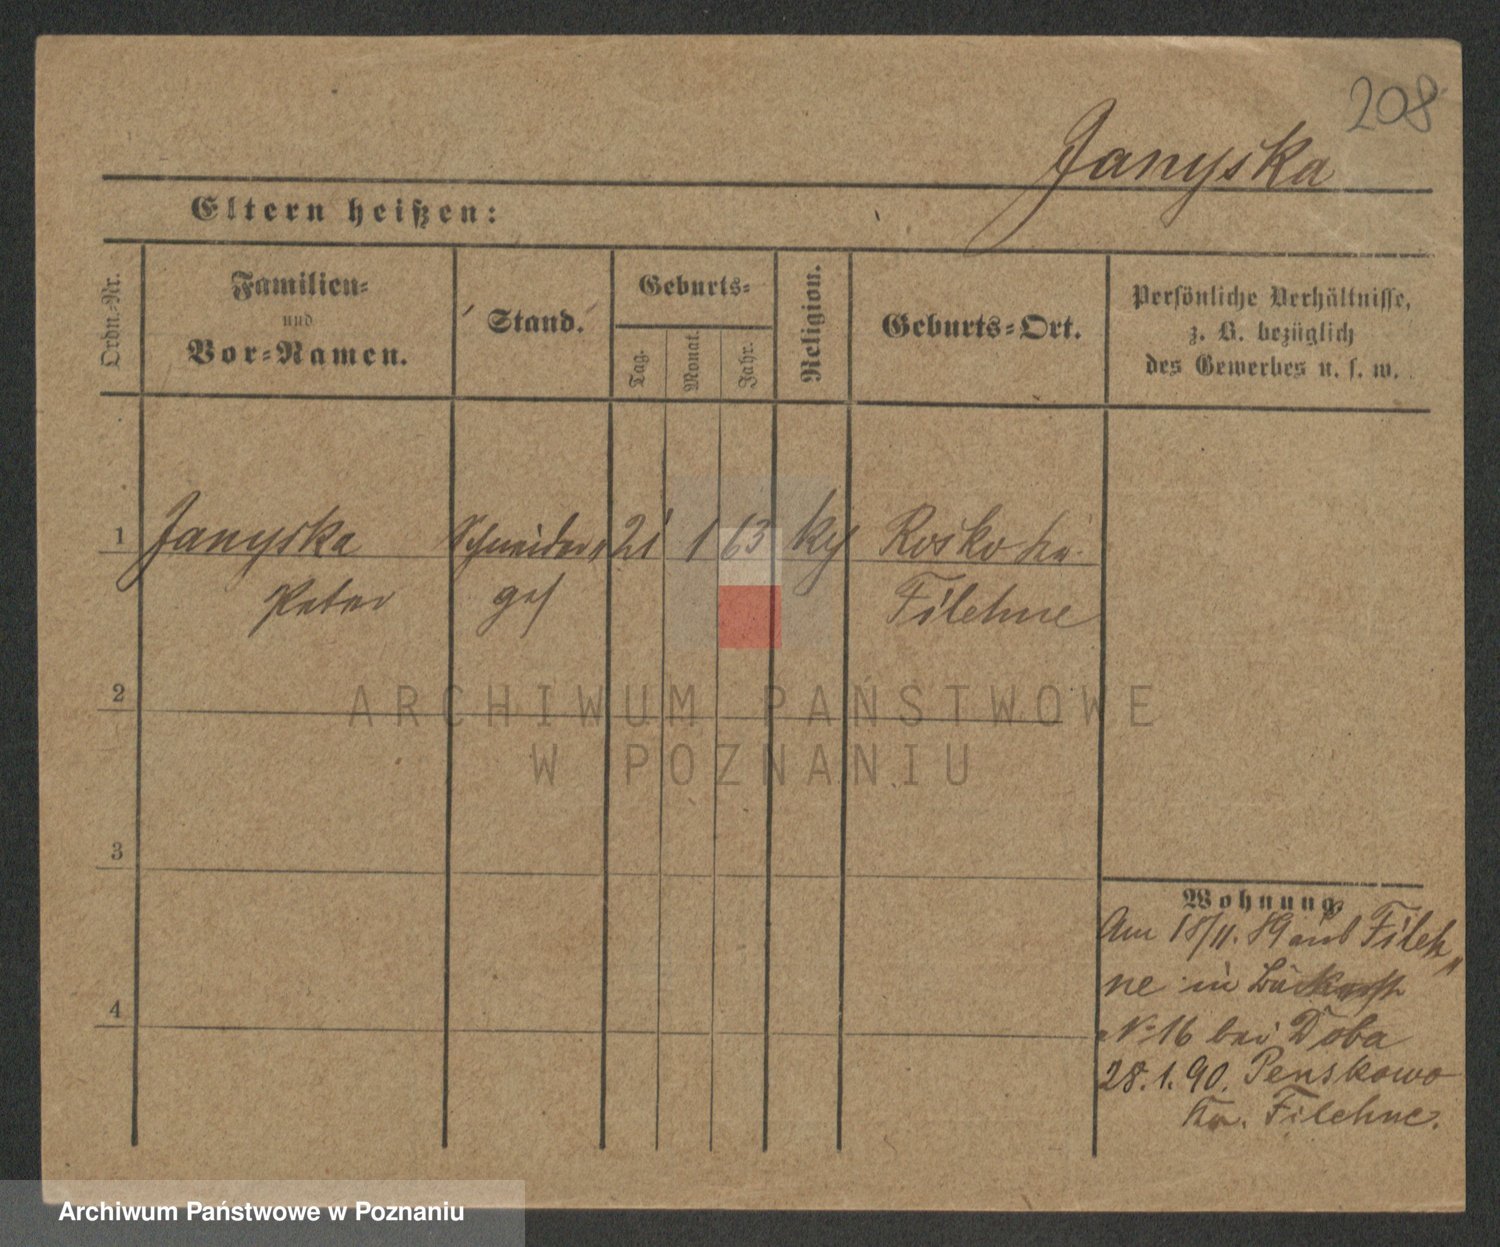 208
Janyska
Eltern heißen:
Ordn.-Nr.
Familien-
und
Vor-Namen.
Stand.
Geburts-
Tag.
Monat.
Jahr.
Religion.
Geburts-Ort.
Persönliche Verhältnisse,
z. B. bezüglich
des Gewerbes u. s. w.
1
Janyska
Peter
Schneider
ges
21
1
63
Rosko Kr.
Filehne
2
3
4
Wohnung
Am 18/11. 89 aus Fileh
ne in
No 16 bei Toba
28. 1. 90. Penskowo
Kr. Filehne.
ARCHIWUM PAŃSTWOWE
W POZNANIU
Archiwum Państwowe w Poznaniu